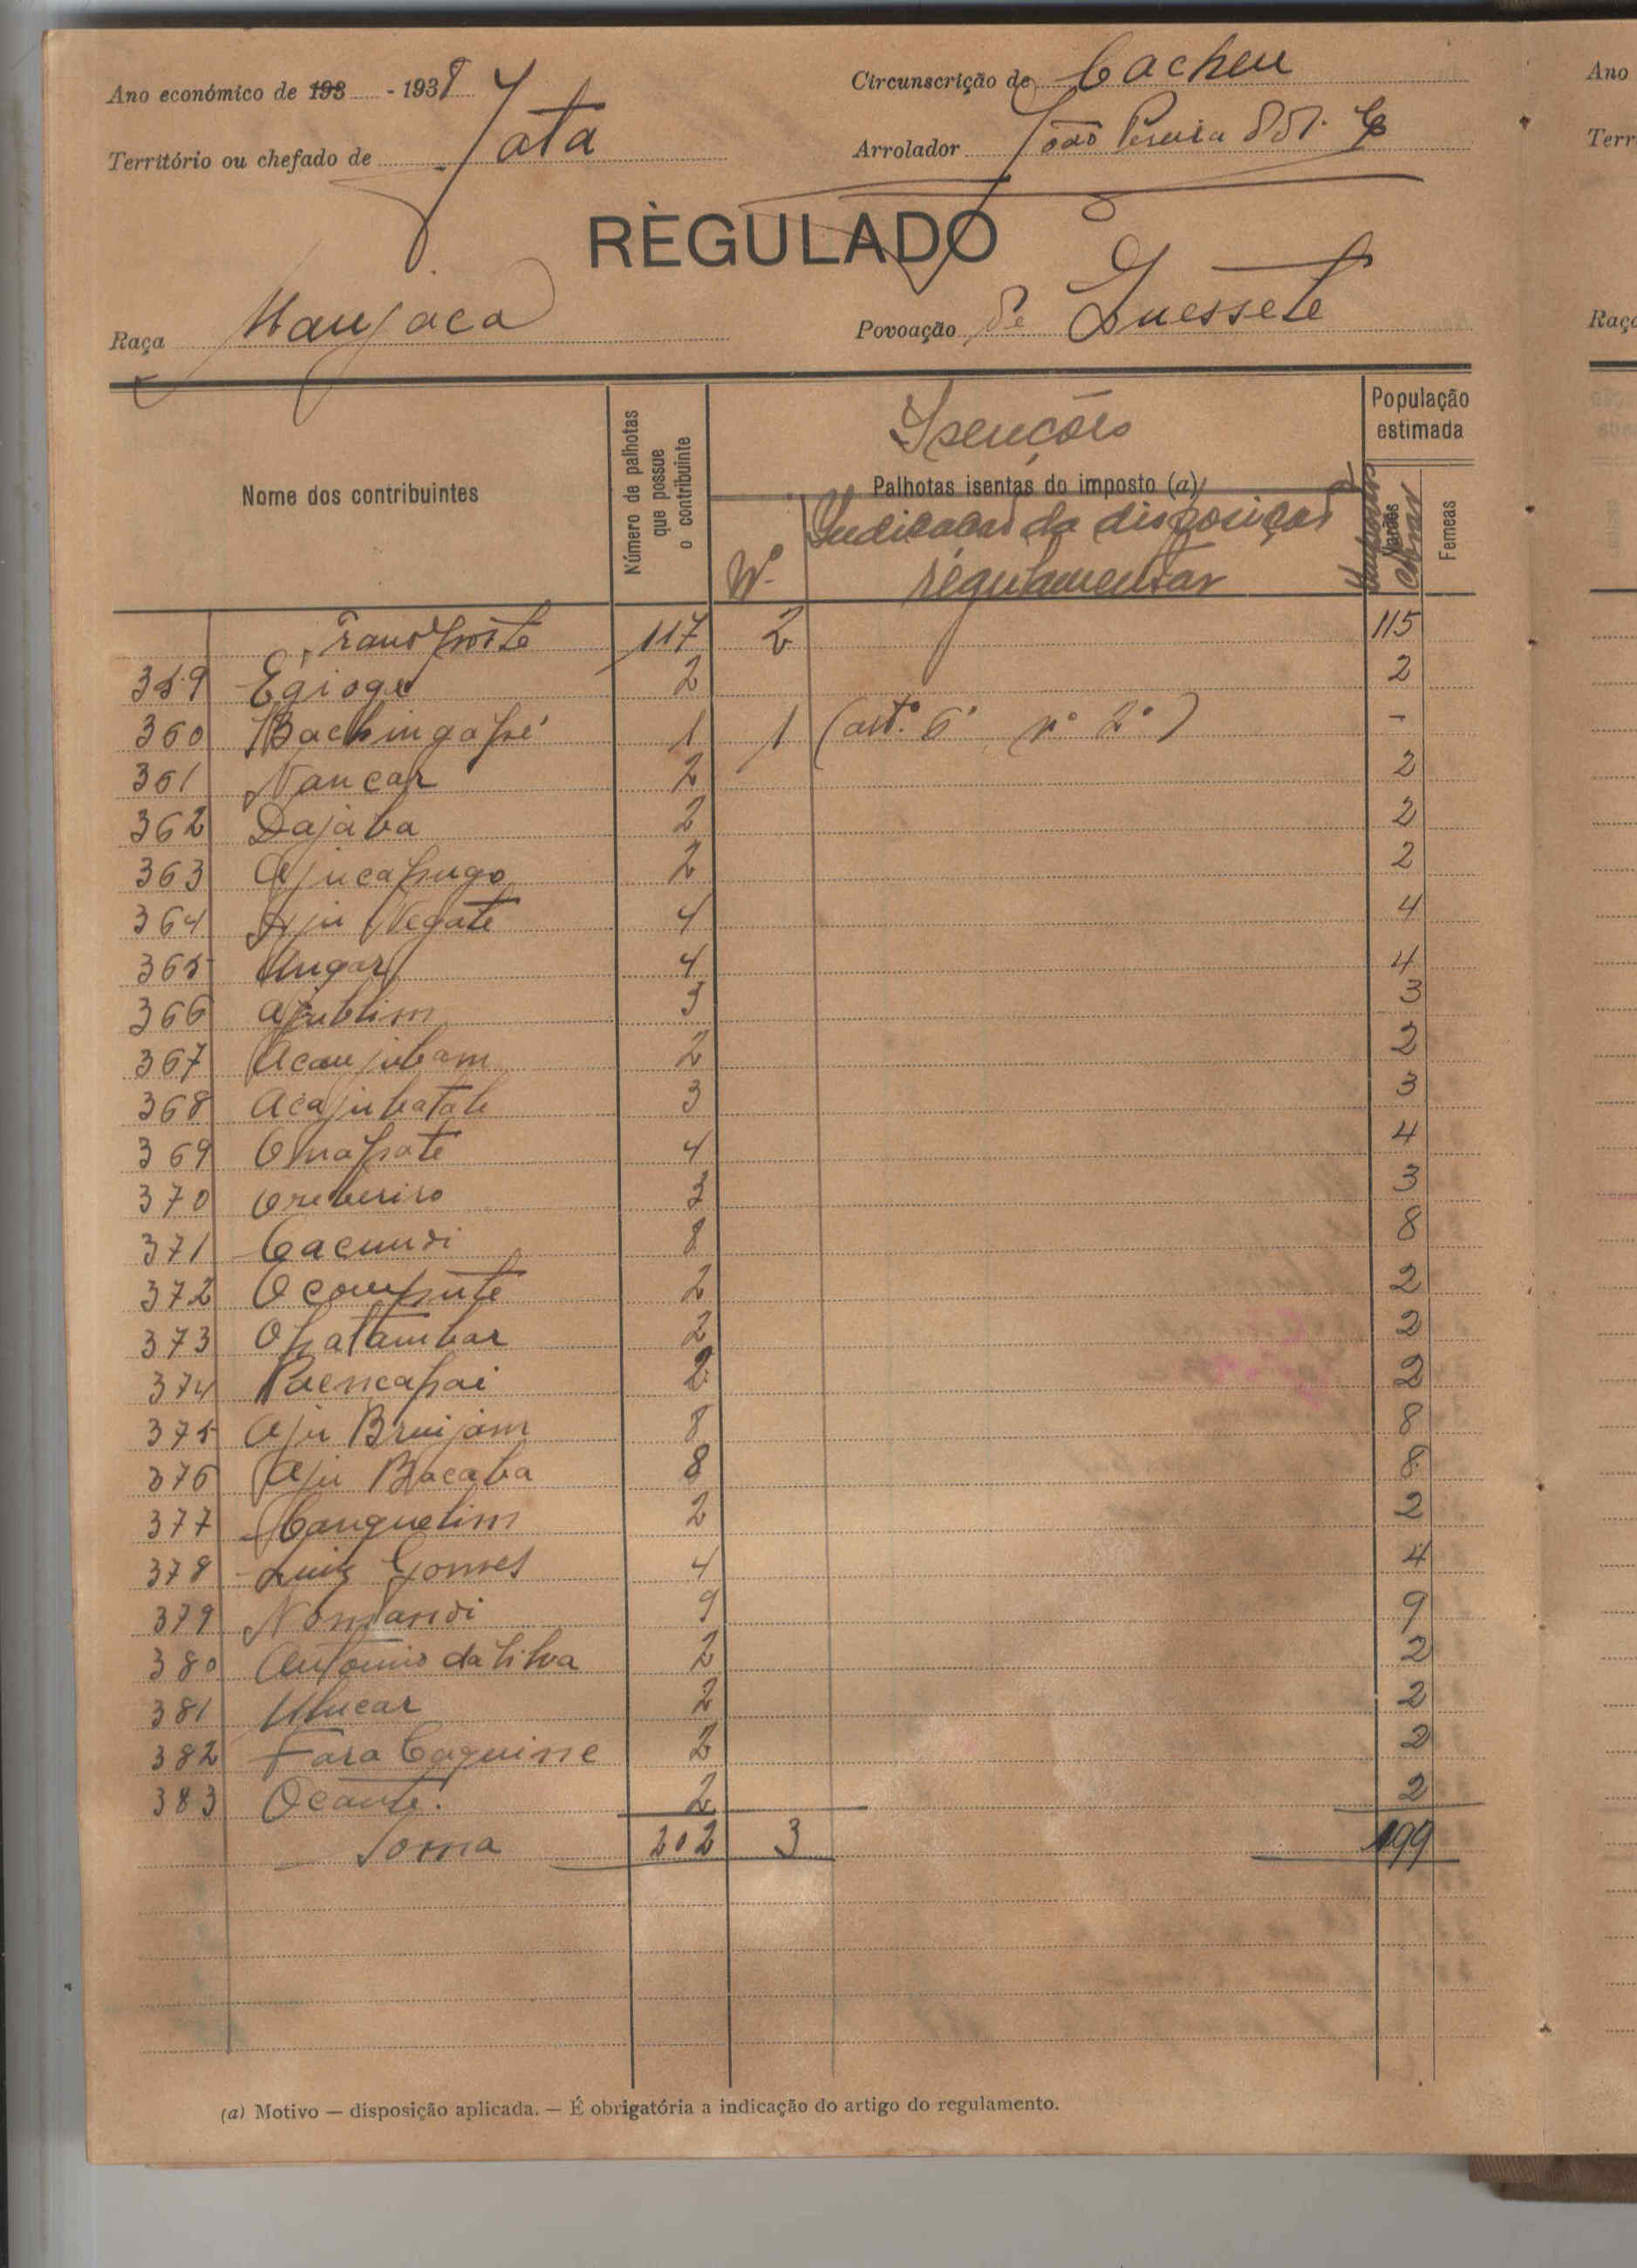 Ano económico de 193 - 1938
Circunscrição de Cacheu
Território ou chefado de Jata
Arrolador João Pereira
REGULADO
Raça Manjaca
Povoação de Guessete
Nome dos contribuintes
Número de palhotas que possue o contribuinte
Isenções
Palhotas isentas do imposto (a)
Nº
Indicação da disposição regulamentar
População estimada
Varões
Femeas
Transporte 117 2 115
359 Egioge 2 2
360 Bachingapé 1 1 (artº. 6º, nº 2º) -
361 Nancar 2 2
362 Dajaba 2 2
363 Ajucapugo 2 2
364 Aju Negate 4 4
365 Ungar 4 4
366 Ajublim 3 3
367 Acanjubam 2 2
368 Acajubatab 3 3
369 Onapate 4 4
370 3 3
371 Cacundi 8 8
372 Ocompute 2 2
373 Opatambar 2 2
374 Paencapai 2 2
375 Aju Bruijam 8 8
376 Aju Bacaba 8 8
377 Canquelim 2 2
378 Luiz Gomes 4 4
379 Nomandi 9 9
380 Antonio da Silva 2 2
381 Ulucar 2 2
382 Fara Caquine 2 2
383 Ocante. 2 2
Soma 202 3 199
(a) Motivo — disposição aplicada. — É obrigatória a indicação do artigo do regulamento.
Ano
Terr
Raç